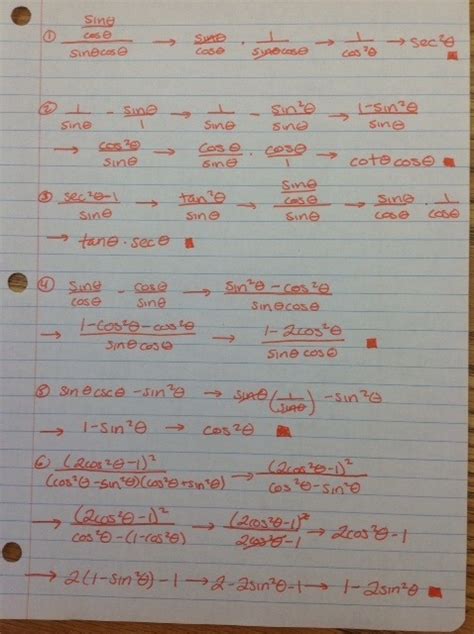 ① (sinθ/cosθ)/(sinθcosθ) → sinθ/cosθ · 1/(sinθcosθ) → 1/cos²θ → sec²θ ■
② 1/sinθ - sinθ/1 → 1/sinθ - sin²θ/sinθ → (1-sin²θ)/sinθ
→ cos²θ/sinθ → cosθ/sinθ · cosθ/1 → cotθcosθ ■
③ (sec²θ-1)/sinθ → tan²θ/sinθ → (sinθ/cosθ)/sinθ → sinθ/cosθ · 1/cosθ
→ tanθ·secθ ■
④ sinθ/cosθ - cosθ/sinθ → (sin²θ-cos²θ)/(sinθcosθ)
→ (1-cos²θ-cos²θ)/(sinθcosθ) → (1-2cos²θ)/(sinθcosθ) ■
⑤ sinθcscθ-sin²θ → sinθ(1/sinθ)-sin²θ
→ 1-sin²θ → cos²θ ■
⑥ (2cos²θ-1)²/((cos²θ-sin²θ)(cos²θ+sin²θ)) → (2cos²θ-1)²/(cos²θ-sin²θ)
→ (2cos²θ-1)²/(cos²θ-(1-cos²θ)) → (2cos²θ-1)²/(2cos²θ-1) → 2cos²θ-1
→ 2(1-sin²θ)-1 → 2-2sin²θ-1 → 1-2sin²θ ■